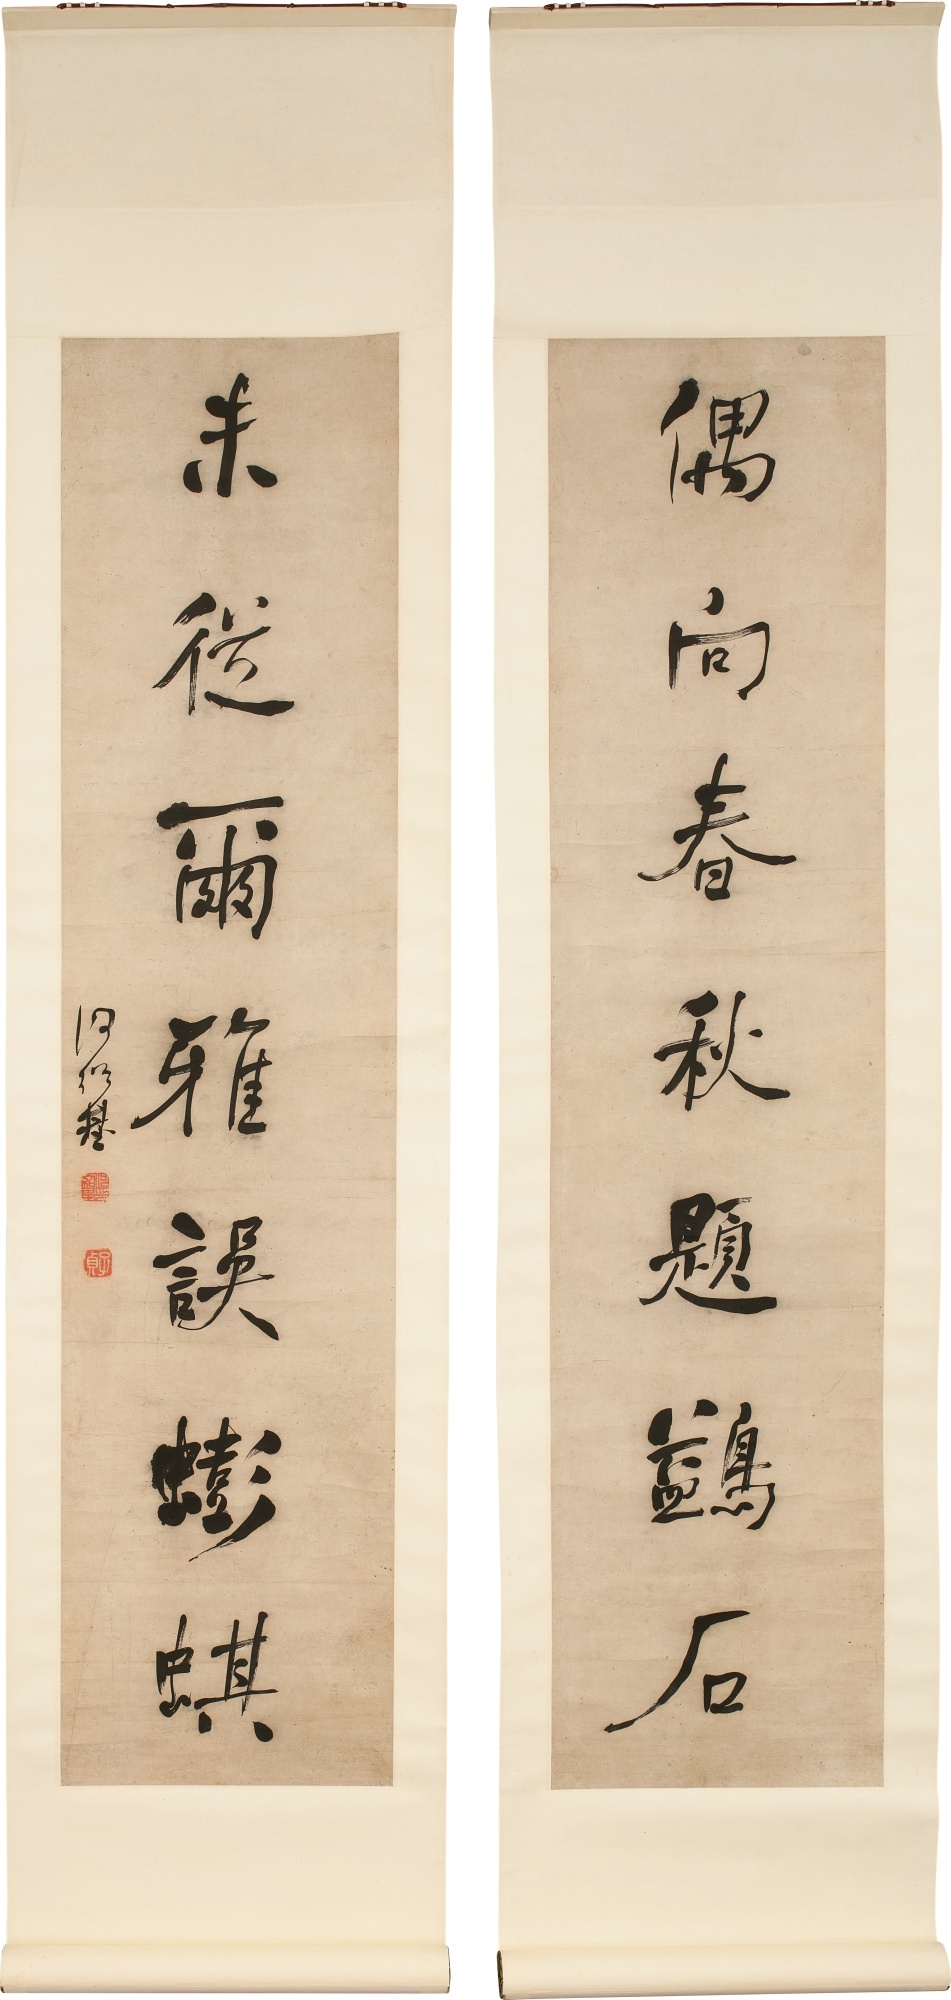 偶向春秋題鷁石
未從爾雅誤蟛蜞
何紹基
子貞